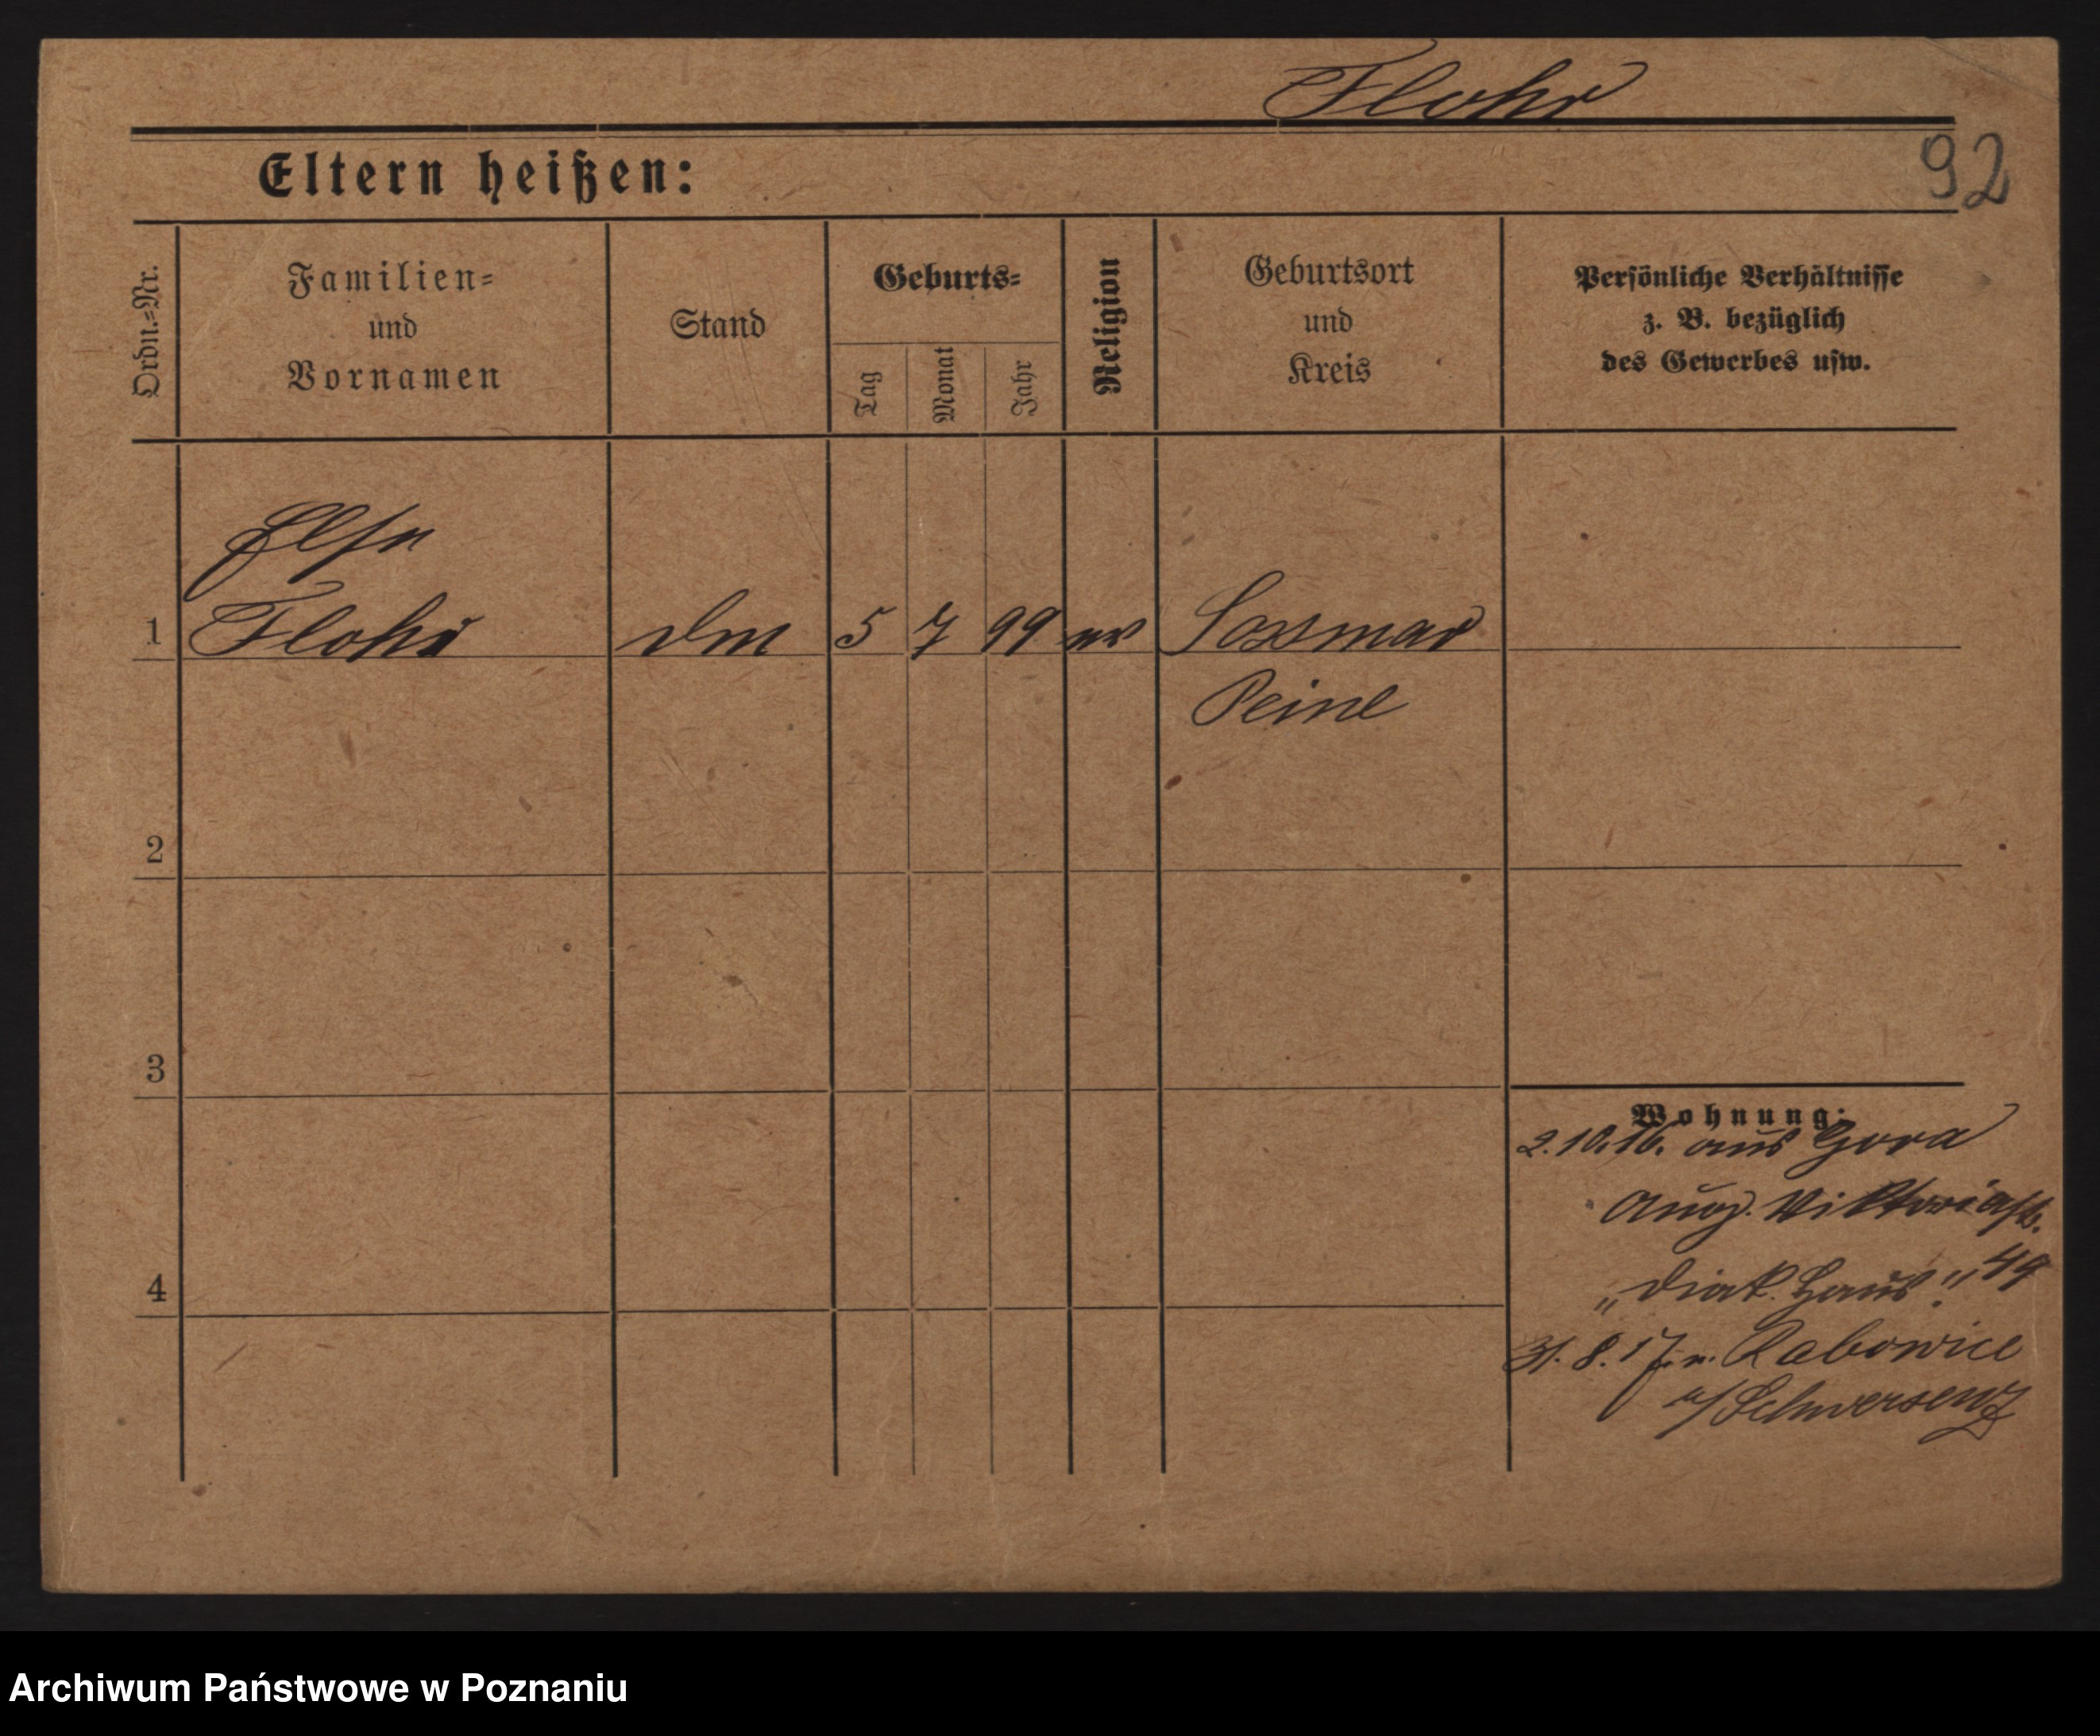 Flohr
92
Eltern heißen:
Ordn.=Nr.
Familien=
und
Vornamen
Stand
Geburts=
Tag
Monat
Jahr
Religion
Geburtsort
und
Kreis
Persönliche Verhältnisse
z. B. bezüglich
des Gewerbes usw.
Else
1 Flohr 5 7 99 ev Sossmar
Peine
2
3
4
Wohnung:
2.10.16. aus Gora
Aug. Viktoriastr.
„Diak. Haus“ 49
31.8.17. n. Rabowice
b/Schwersenz
Archiwum Państwowe w Poznaniu